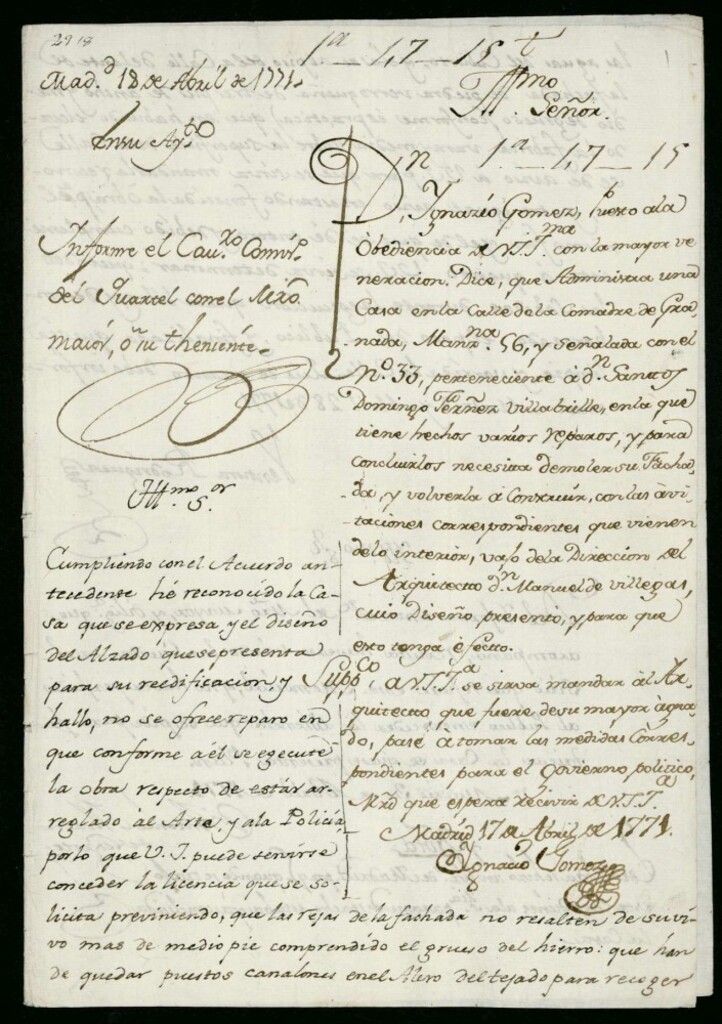 29 18
1ª - 47 - 15 t
Mad.d 18 de Abril de 1771.
En su Ay.to
Informe el Cav.ro Comis.o
del Quartel con el Mro.
maior, o su theniente.
Ill.mo S.or
Cumpliendo con el Acuerdo an-
tecedente hé reconocido la Ca-
sa que se expresa, y el diseño
del Alzado que se presenta
para su reedificacion, y
hallo, no se ofrece reparo en
que conforme a el se egecute
la obra respecto de estár ar-
reglado al Arte, y ala Policía,
por lo que V. I. puede servirse
conceder la licencia que se so-
licita previniendo, que las rejas de la fachada no resalten de su vi-
vo mas de medio pie comprendido el grueso del hierro: que han
de quedar puestos canalones en el Alero del tejado para recoger
Ill.mo
Señor.
1ª - 47 - 15
D.n Ygnazio Gomez, puesto ala
Obediencia de V.S.I.ma con la mayor ve
neracion. Dice, que Administra una
Casa en la Calle de la Comadre de Gra-
nada, Manz.na 56, y señalada con el
N.º 33, perteneciente á d.n Santos
Domingo Fernz Villabrille, en la que
tiene hechos varios reparos, y para
concluirlos necesita demoler su Facha-
da, y volverla á Construir, con las avi-
taciones correspondientes que vienen
delo interior, vajo dela Direccion del
Arquitecto d.n Manuel de Villegas,
cuio Diseño presento, y para que
esto tenga efecto.
Supp.co a V.S.I.a se sirva mandar al Ar-
quitecto que fuere de su mayor agra-
do, pase á tomar las medidas Corres-
pondientes para el Govierno politico,
Mrd que espera recivir de V.S.I.a
Madrid 17 de Abril de 1771.
Ygnacio Gomez